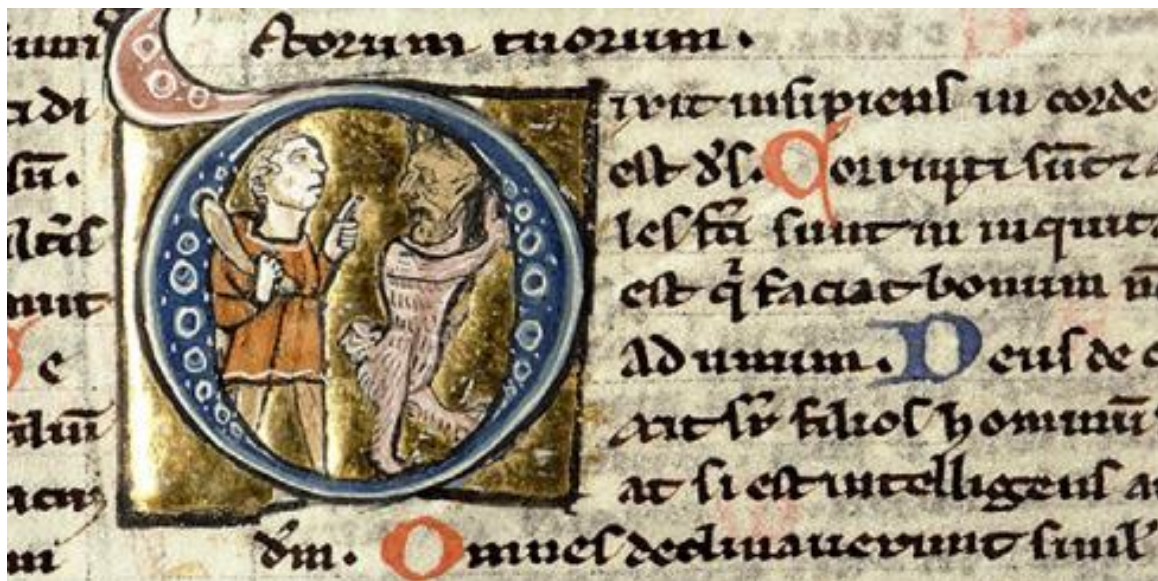 ctorum tuorum.
Dixit insipiens in corde
est d̄s. Corrupti sūt ⁊ a
les fc̄i sunt in iniquit
est qͥ faciat bonum n̄
ad unum. Deus de c
xit sr̄ filios hominū
at si est intelligens a
dm̄. Omnes declinauerunt simil